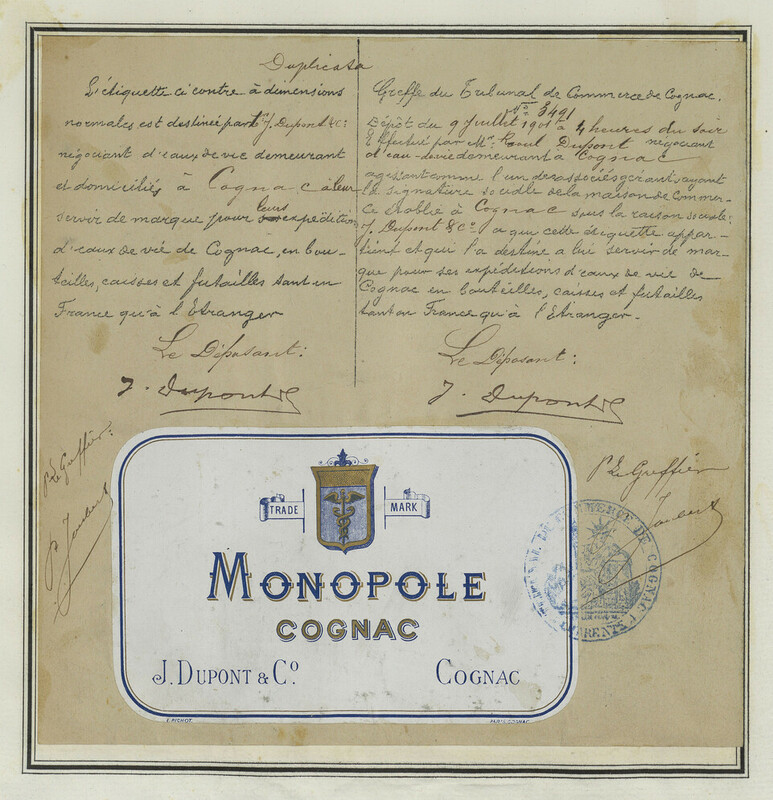 Duplicata
L'étiquette ci contre à dimensions
normales est destinée par J. Dupont & C°:
négociant d'eaux de vie demeurant
et domiciliés à Cognac à leur
servir de marque pour leurs expéditions
d'eaux de vie de Cognac, en bou-
teilles, caisses et futailles tant en
France qu'à l'Etranger
Le Déposant:
J. Dupont & C°
Greffe du Tribunal de Commerce de Cognac.
N° 3491
Dépôt du 9 Juillet 1901 à 4 heures du soir
Effectué par Mr. Raoul Dupont négociant
d'eau-de-vie demeurant à Cognac
agissant comme l'un des associés gérant ayant
la signature sociale de la maison de Commer-
ce établie à Cognac sous la raison sociale:
J. Dupont & C° à que cette étiquette appar-
tient et qui l'a destiné a lui servir de mar-
que pour ses expéditions d'eaux de vie de
Cognac en bouteilles, caisses et futailles
tant en France qu'à l'Etranger.
Le Déposant:
J. Dupont & C°
P. Le Greffier:
P. Joubert
P. Le Greffier
Joubert
TRADE MARK
MONOPOLE
COGNAC
J. DUPONT & C° COGNAC
DE COMMERCE DE COGNAC